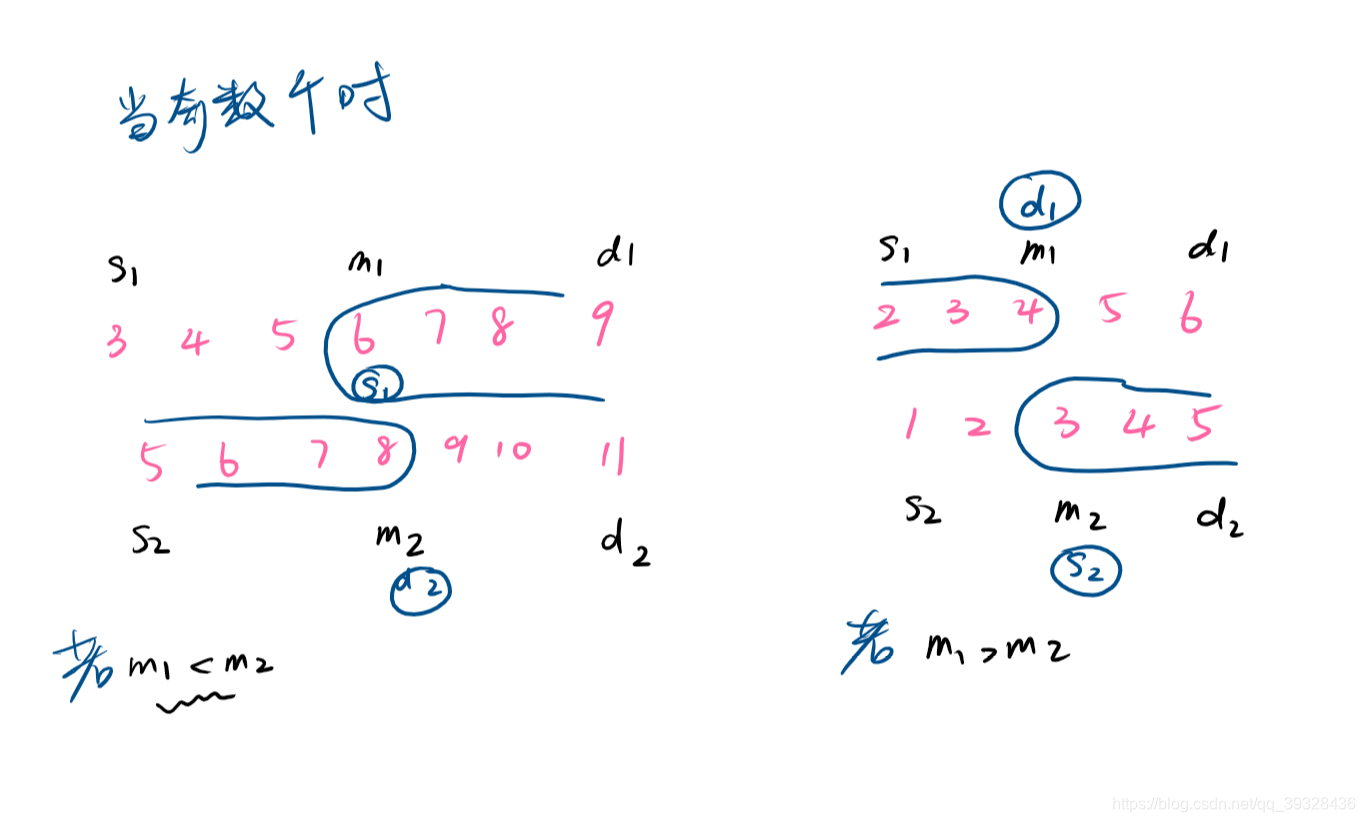 当奇数个时
s1 m1 d1
3 4 5 6 7 8 9
s1
5 6 7 8 9 10 11
s2 m2 d2
d2
若 m1 < m2
d1
s1 m1 d1
2 3 4 5 6
1 2 3 4 5
s2 m2 d2
s2
若 m1 > m2
https://blog.csdn.net/qq_39328436